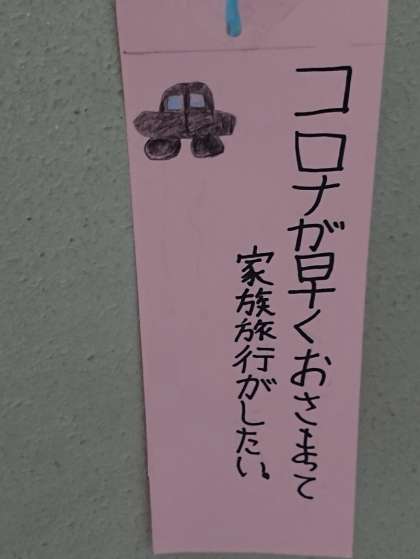 コロナが早くおさまって
家族旅行がしたい。